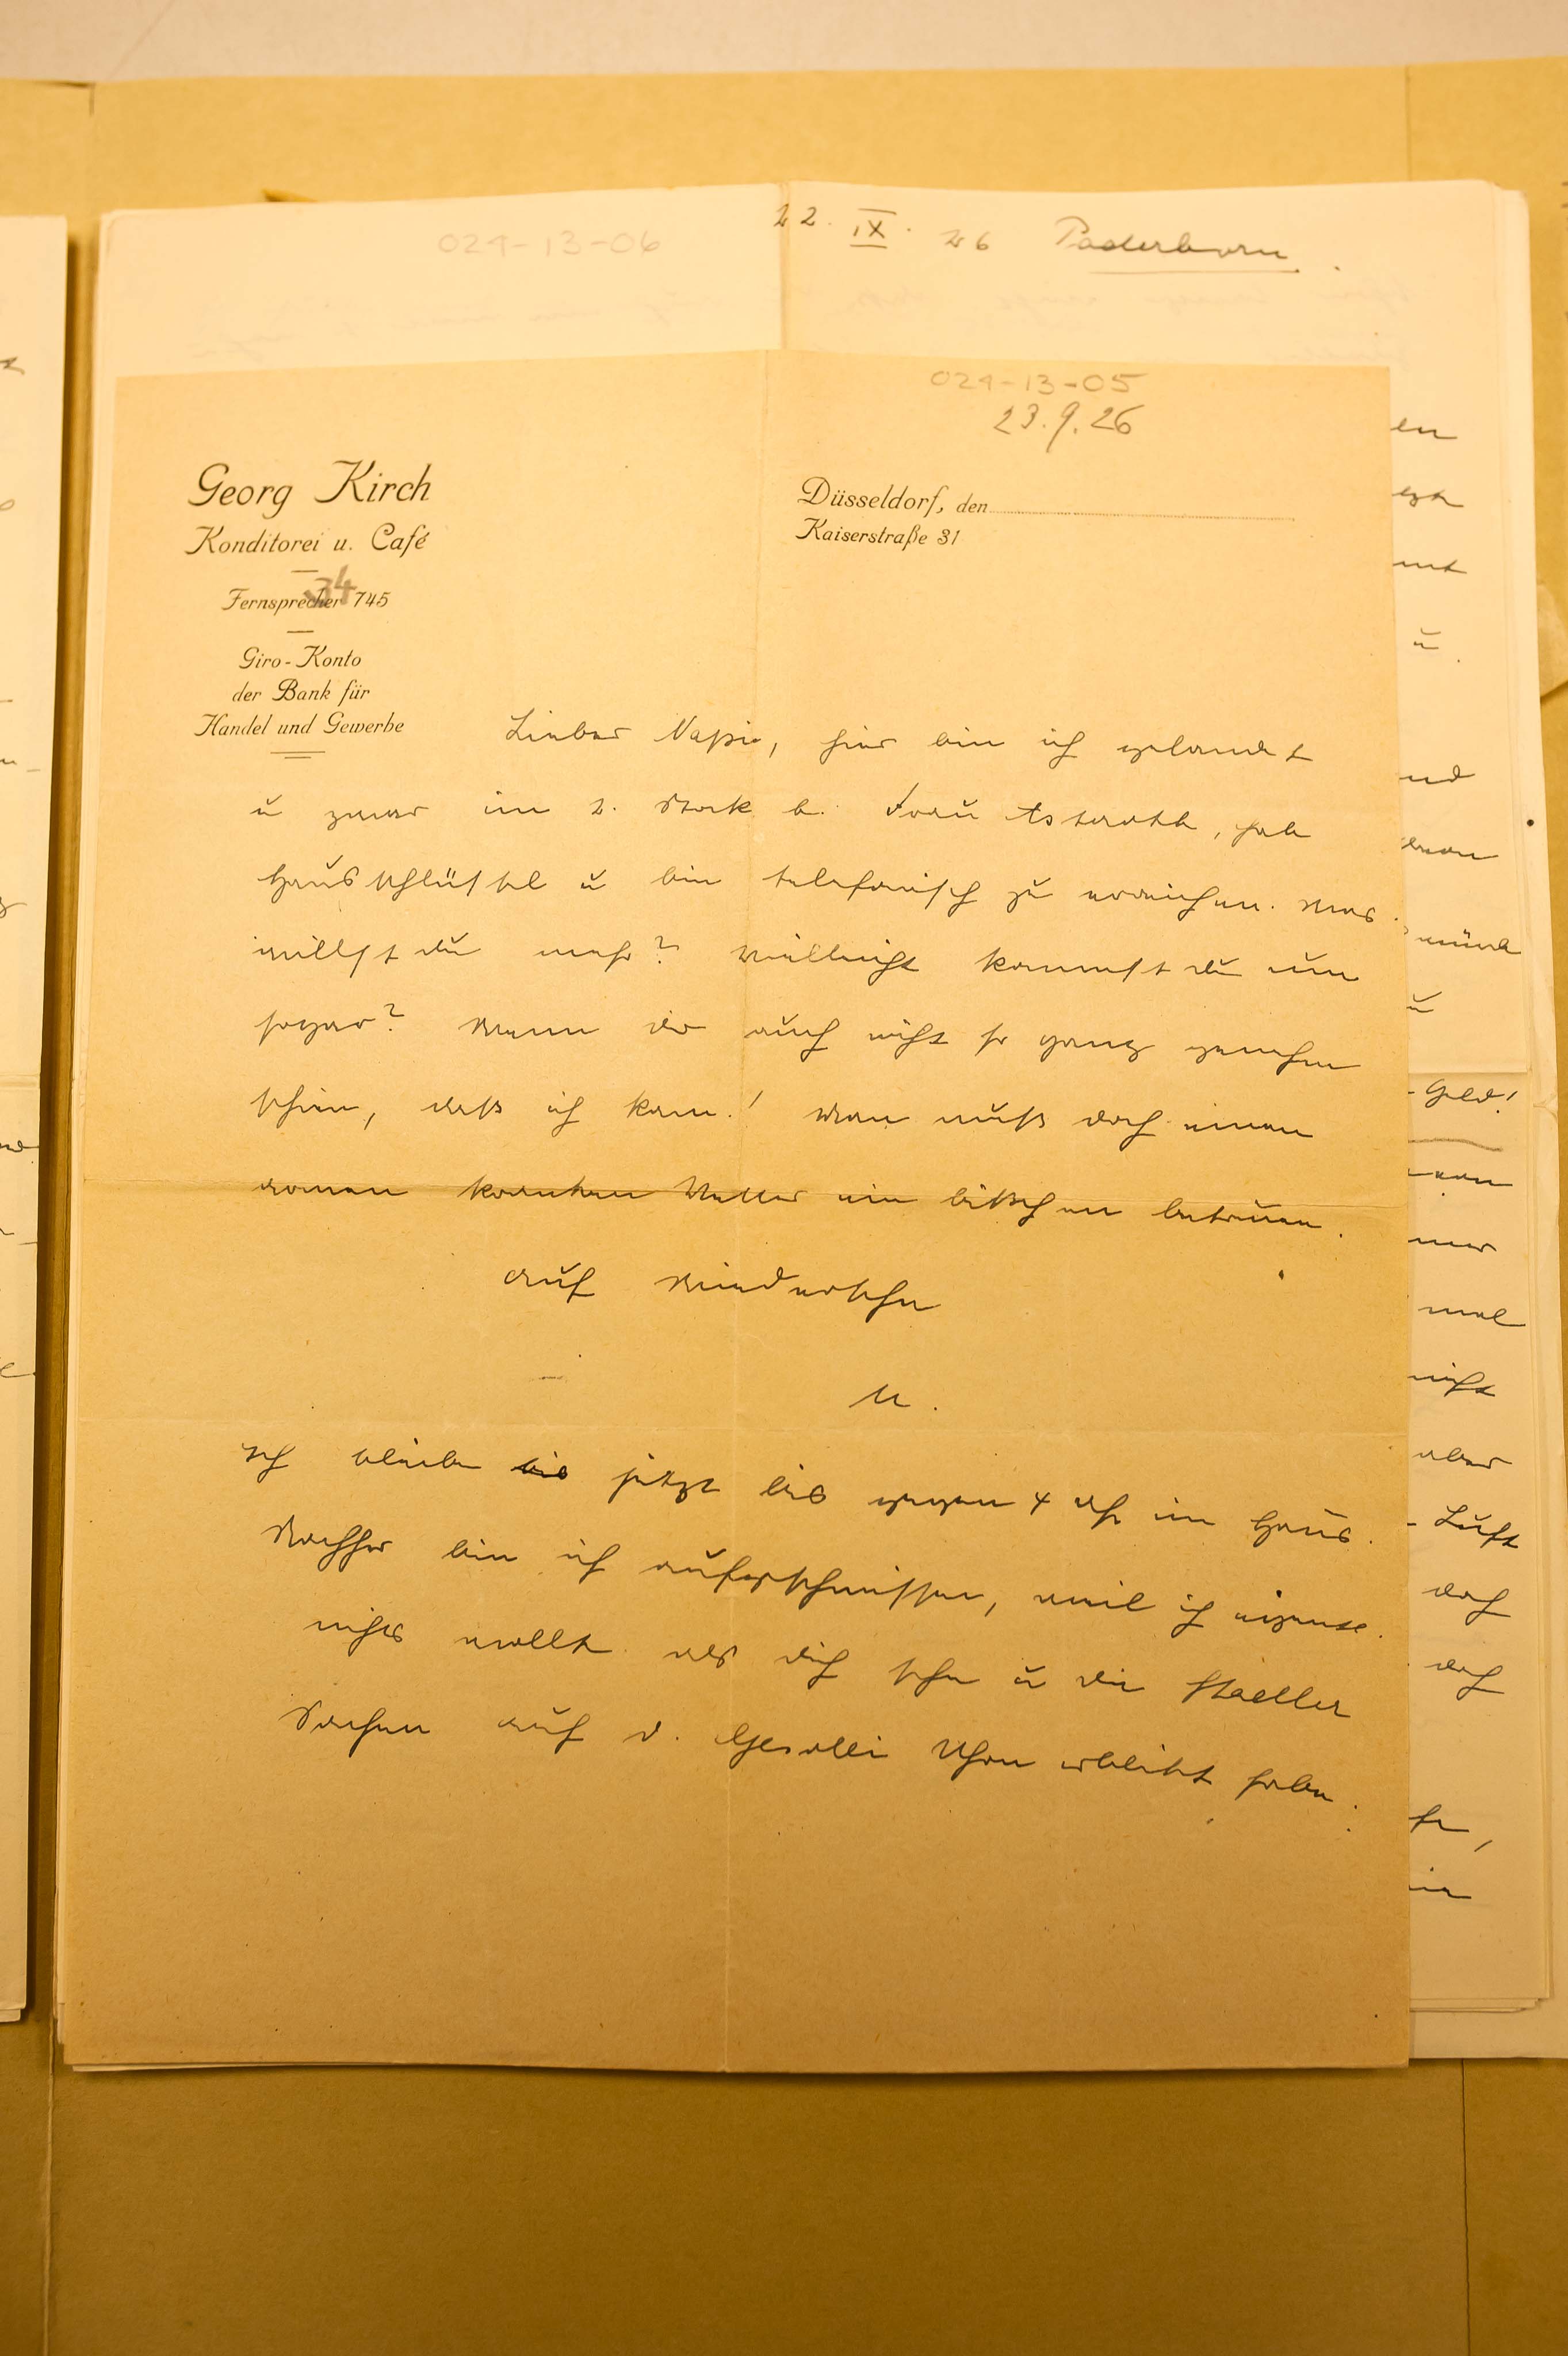 024-13-06
22. IX. 26 Paderborn.
024-13-05
23.9.26
Georg Kirch
Konditorei u. Café
34
Fernsprecher 745
Giro-Konto
der Bank für
Handel und Gewerbe
Düsseldorf, den
Kaiserstraße 31
Lieber Napi, hier bin ich gelandet
u zwar im 2. Stock b. Frau Asteroth, hab
Hausschlüssel u bin telefonisch zu erreichen. Was
willst du mehr? Vielleicht kommst du nun
sogar? Wenn dir auch nicht so ganz genehm
schien, dass ich kam! Man muss doch einen
armen kranken Vetter ein bisschen betreuen.
Auf Wiedersehn
M.
Ich bleibe bis jetzt bis gegen 4 Uhr im Haus.
Nachher bin ich aufgeschmissen, weil ich eigentl.
nichts wollte als dich sehn u die
Sachen auf d. Gesolei schon erblickt habe.
en
mt
u.
nd
u
Geld!
mer
mal
nicht
aber
Luft
doch
doch